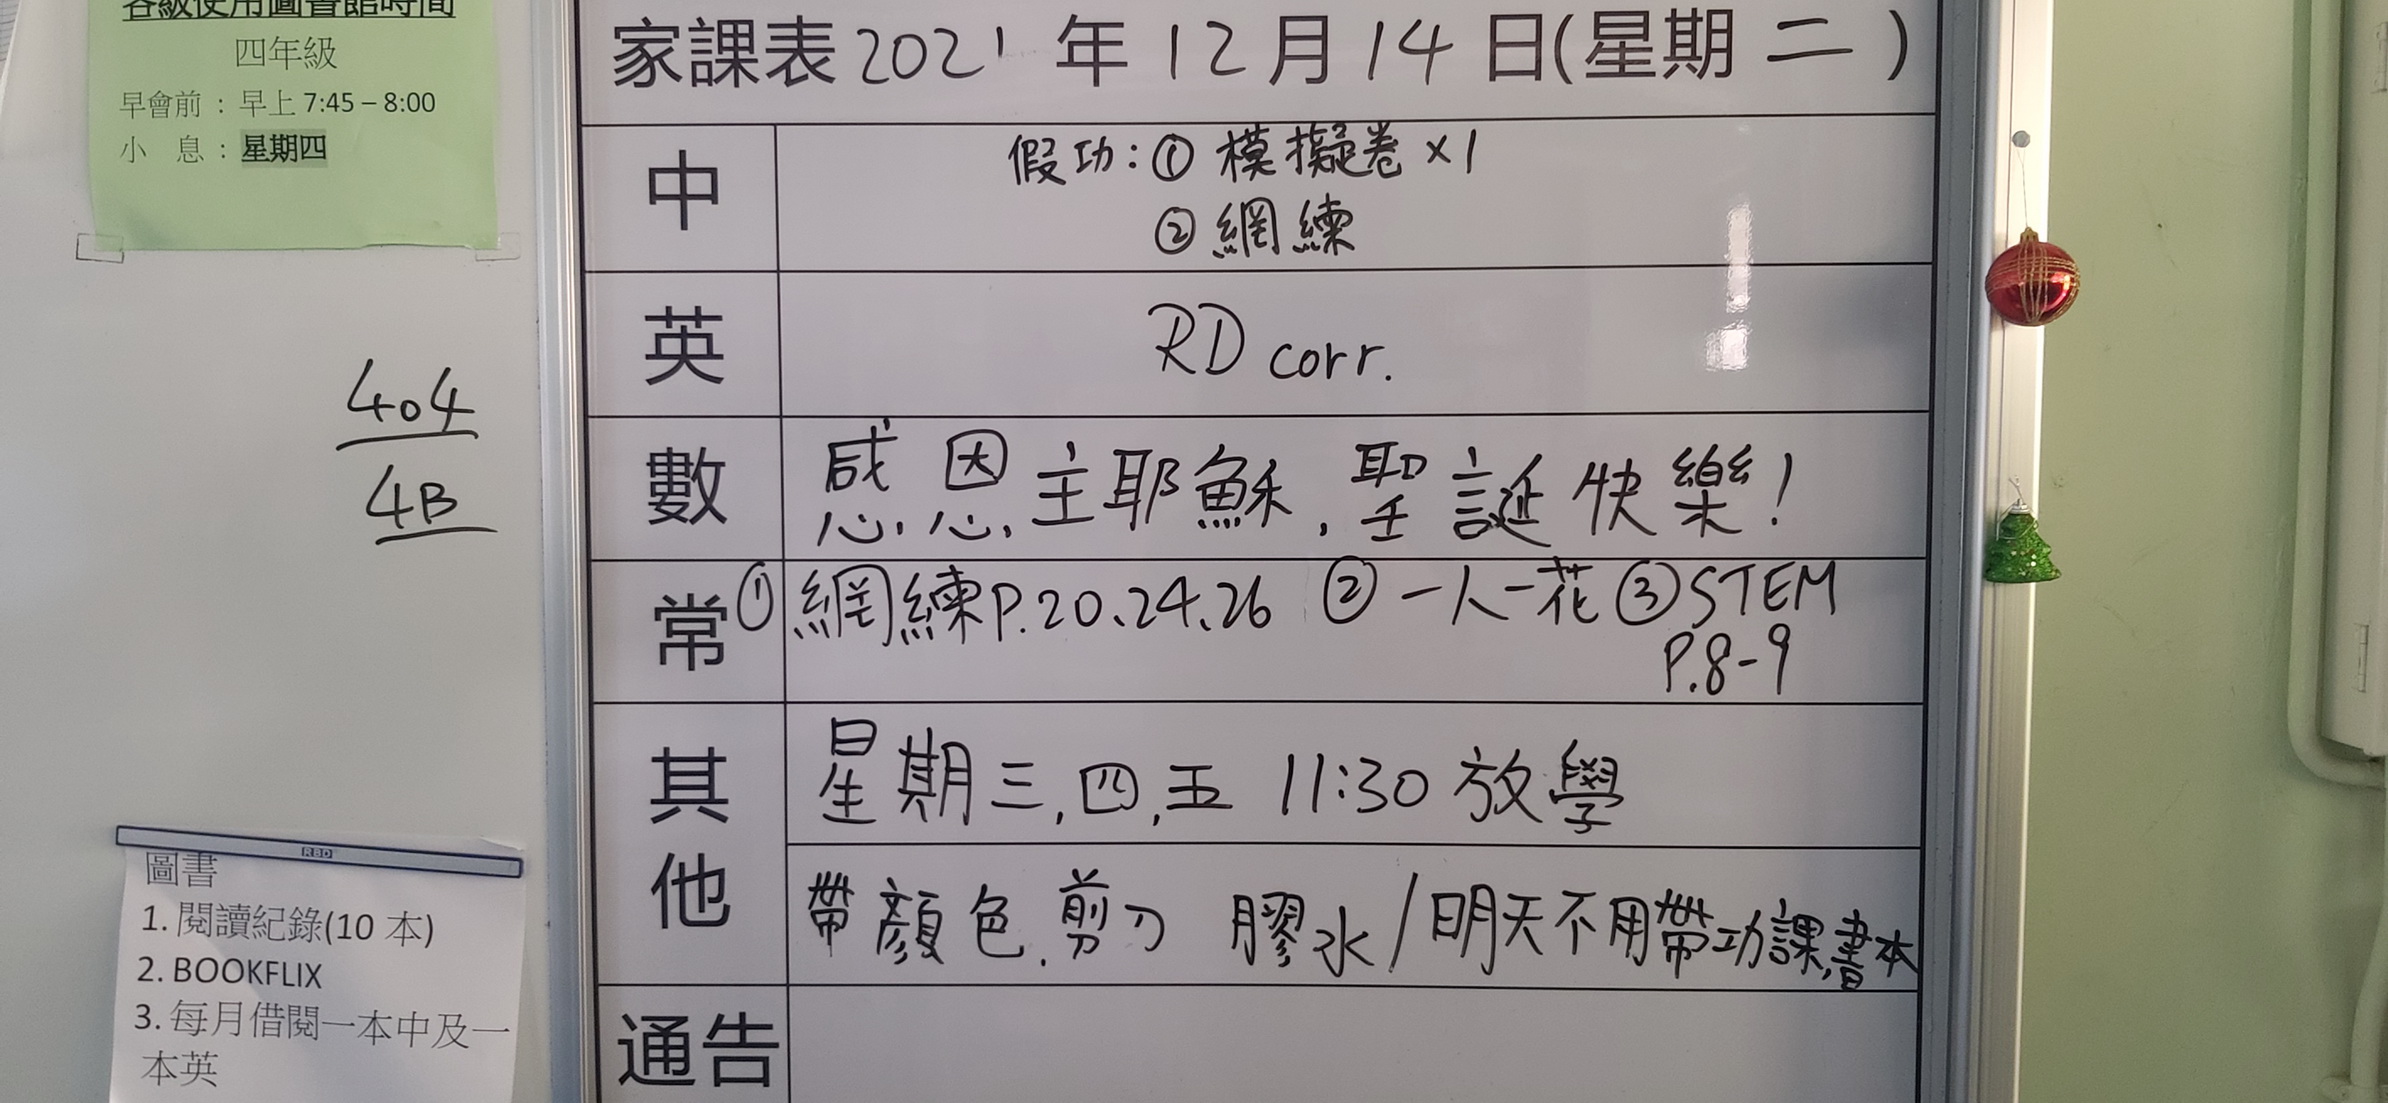 各級使用圖書館時間
四年級
早會前：早上 7:45 – 8:00
小 息：星期四
404
4B
RBD
圖書
1. 閱讀紀錄(10 本)
2. BOOKFLIX
3. 每月借閱一本中及一
本英
家課表 2021 年 12 月 14 日(星期 二 )
中 假功：① 模擬卷 ×1
② 網練
英 RD corr.
數 感恩主耶穌，聖誕快樂！
常 ① 網練P.20、24、26 ② 一人一花 ③ STEM
P.8-9
其他
星期三，四，五 11:30 放學
帶顏色，剪刀 膠水/明天不用帶功課，書本
通告